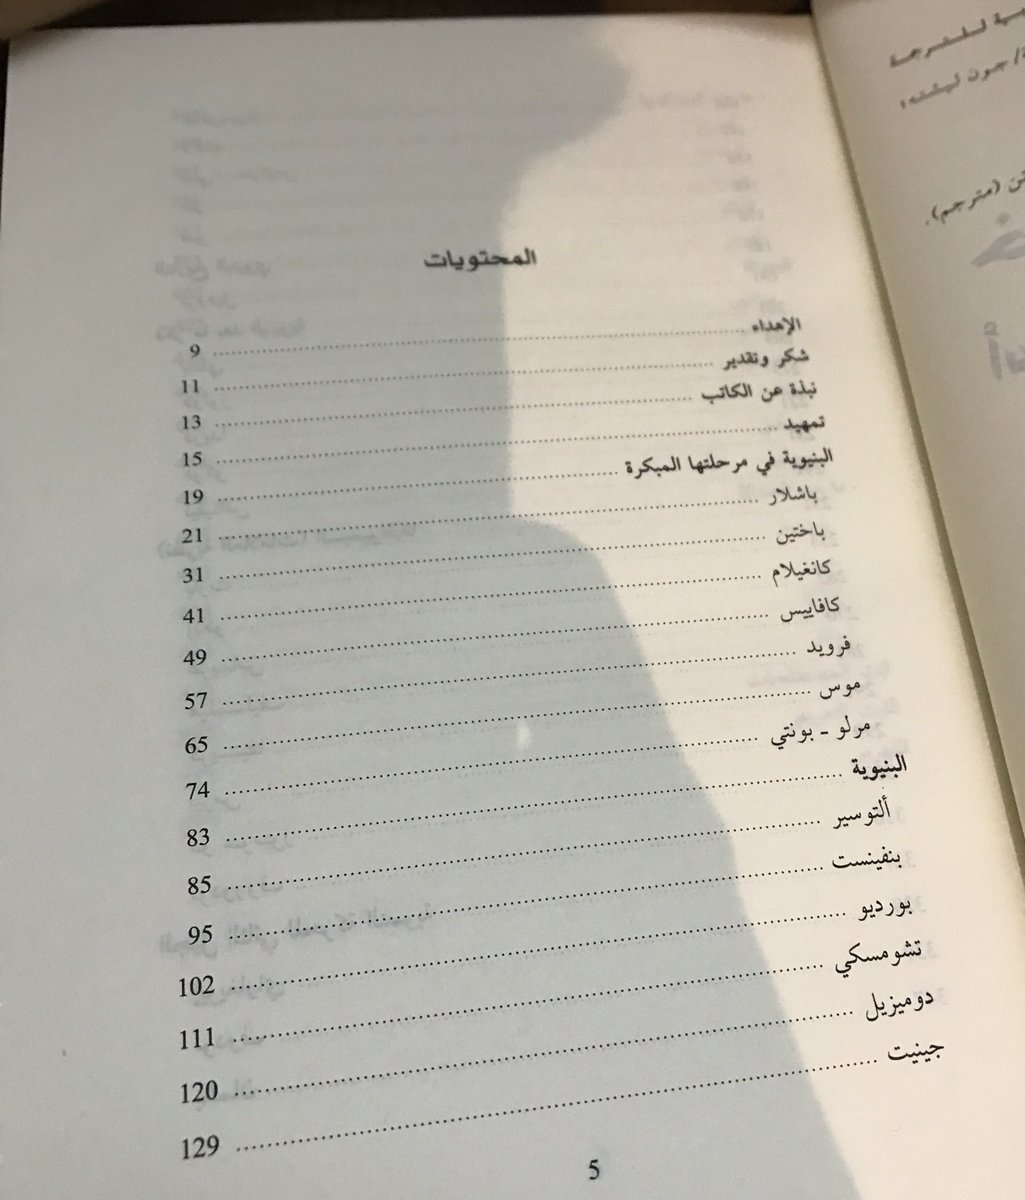 المحتويات
الإهداء ........ 9
شكر وتقدير ........ 11
نبذة عن الكاتب ........ 13
تمهيد ........ 15
البنيوية في مرحلتها المبكرة ........ 19
باشلار ........ 21
باختين ........ 31
كانغيلام ........ 41
كافاييس ........ 49
فرويد ........ 57
موس ........ 65
مرلو - بونتي ........ 74
البنيوية ........ 83
ألتوسير ........ 85
بنفينست ........ 95
بورديو ........ 102
تشومسكي ........ 111
دوميزيل ........ 120
جينيت ........ 129
5
للترجمة
جون ليشته؛
(مترجم).